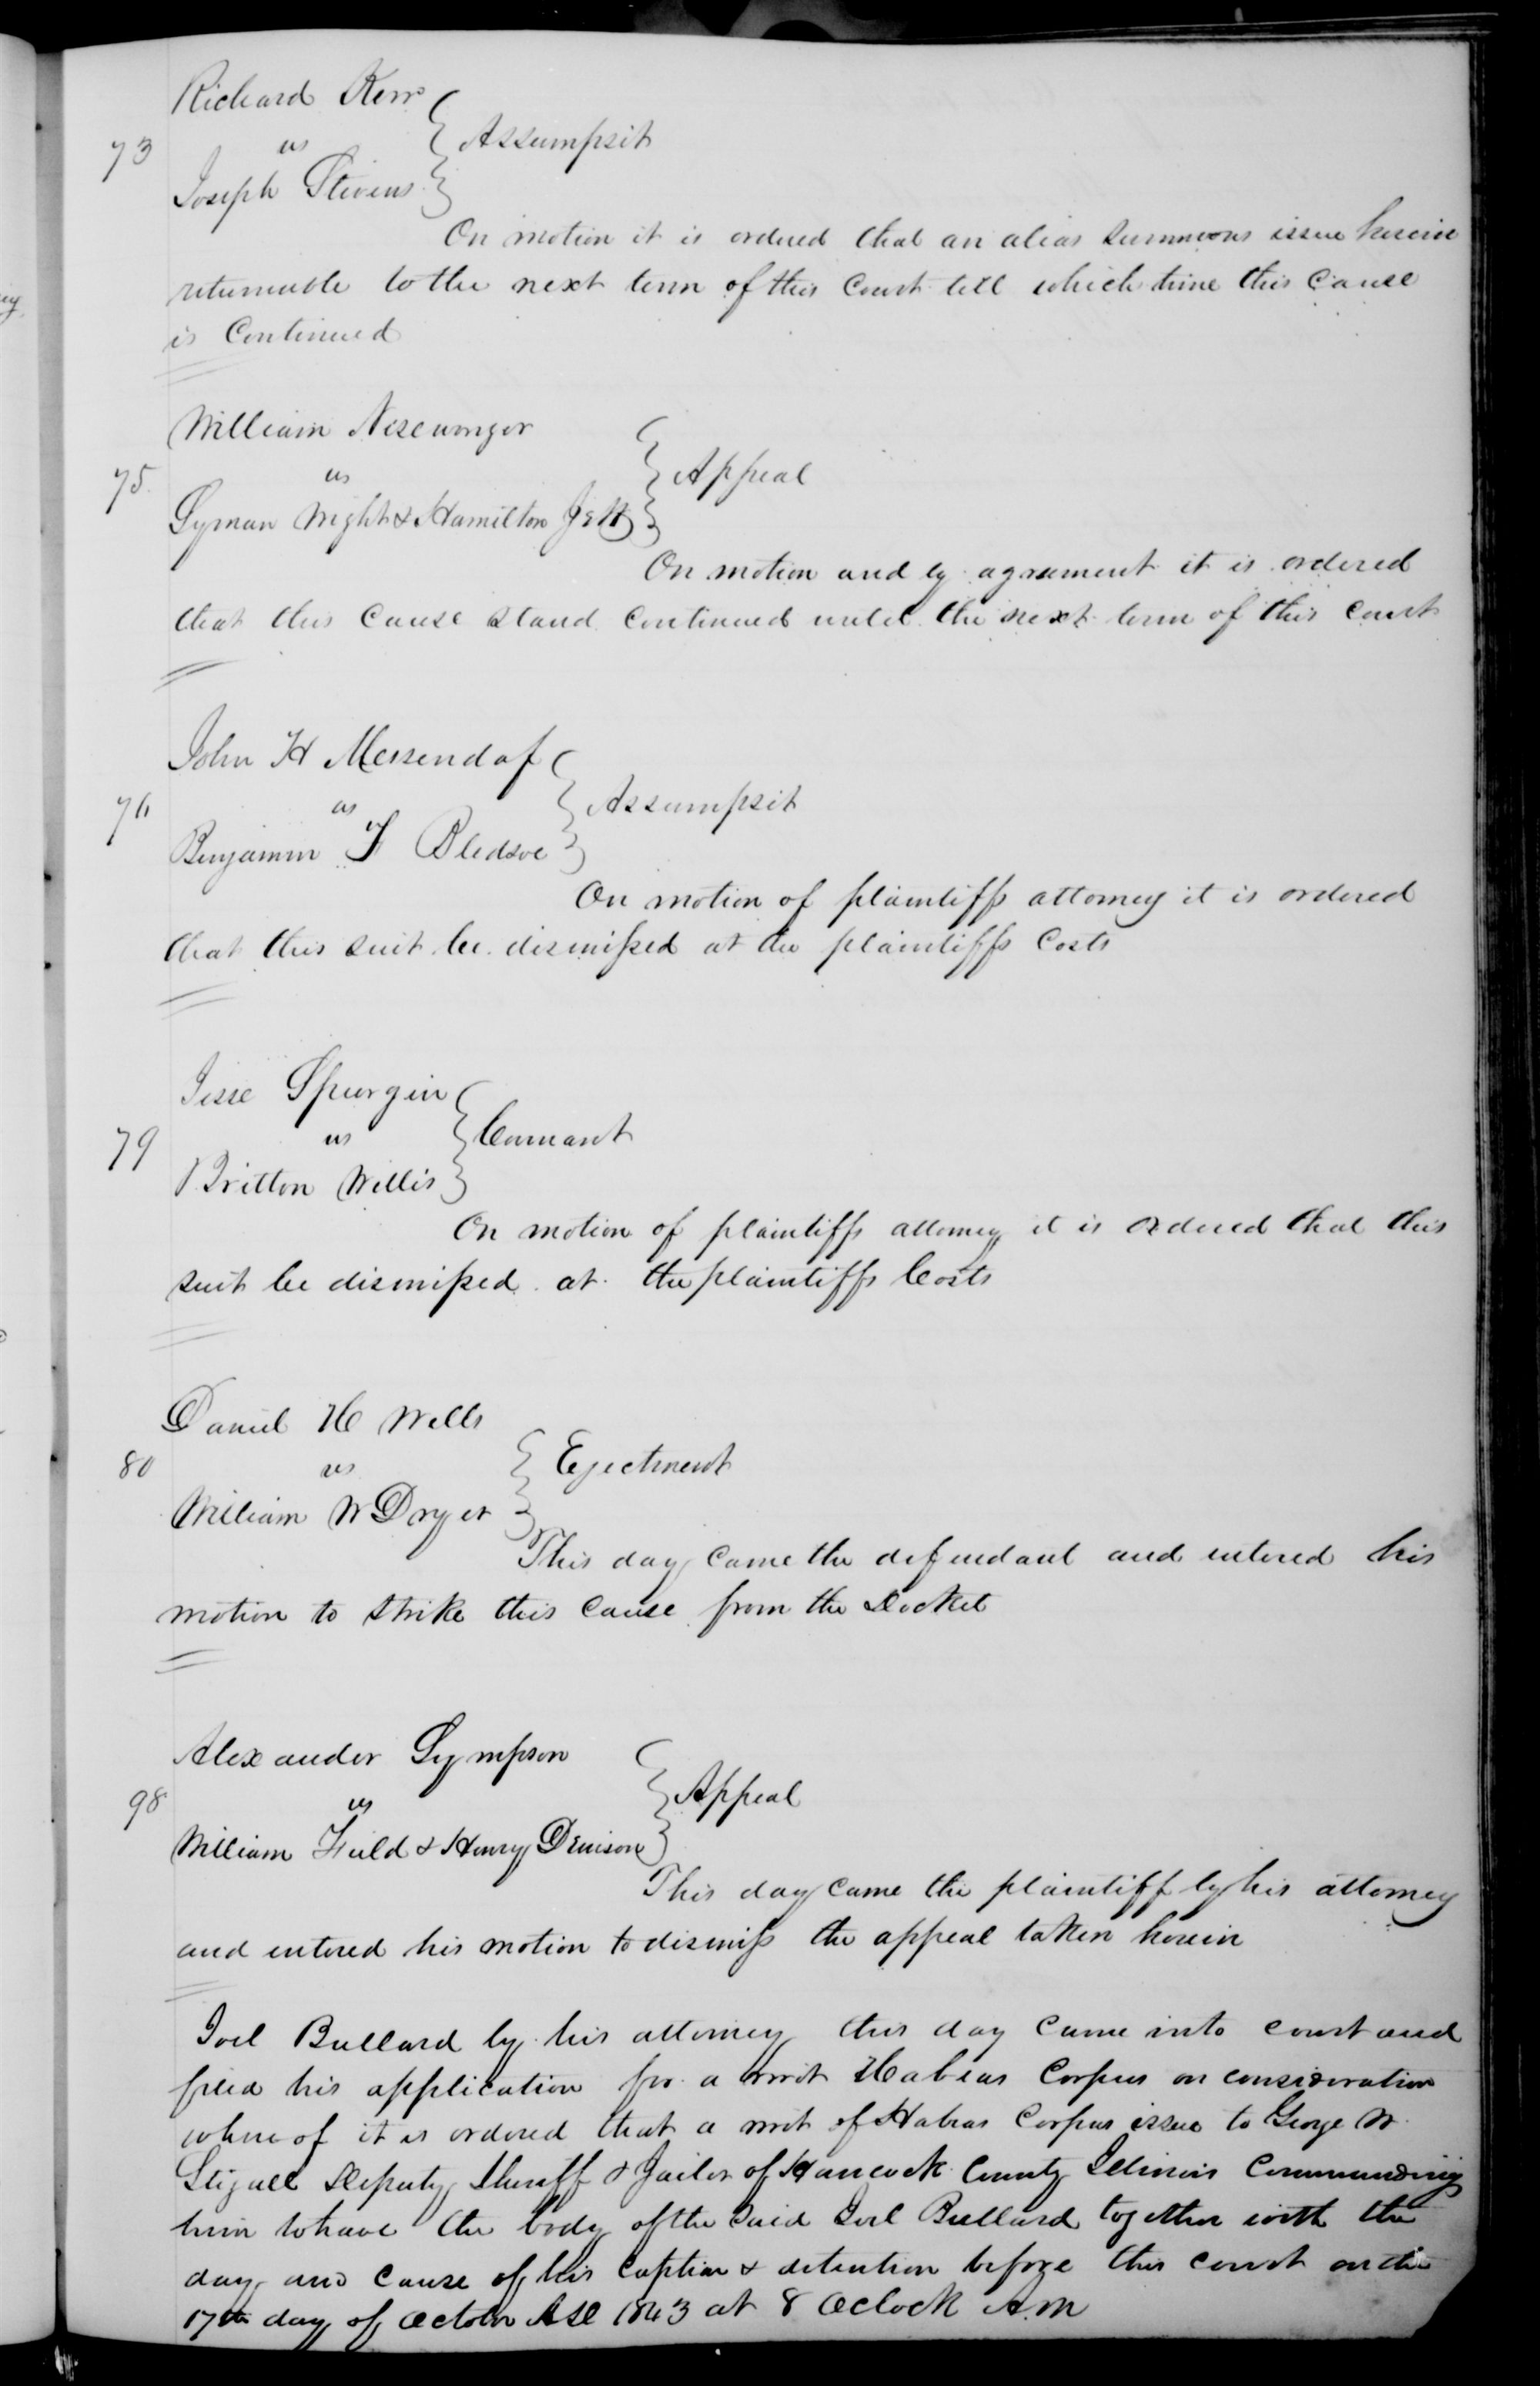 Richard Kerr
73 vs } Assumpsit
Joseph Stevens
On motion it is ordered that an alias summons issue herein
returnable to the next term of this Court till which time this cause
is Continued
William
75 vs } Appeal
Lyman Wight & Hamilton Jett
On motion and by agreement it is ordered
that this cause stand continued until the next term of this court
John H Messendaf
76 vs } Assumpsit
Benjamin F Bledsoe
On motion of plaintiffs attorney it is ordered
that this suit be dismissed at the plaintiffs Costs
Jesse Spurgin
79 vs }
Britton Willis
On motion of plaintiffs attorney it is ordered that this
suit be dismissed at the plaintiffs Costs
Daniel H Wells
80 vs } Ejectment
William W Dryer
This day came the defendant and entered his
motion to strike this cause from the Docket
Alexander Sympson
98 vs } Appeal
William Field & Henry Denison
This day came the plaintiff by his attorney
and entered his motion to dismiss the appeal taken herein
Joel Bullard by his attorney this day came into court and
filed his application for a writ Habeas Corpus on consideration
where of it is ordered that a writ of Habeas Corpus issue to George W
Stigall Deputy Sheriff & Jailor of Hancock County Illinois Commanding
him to have the body of the said Joel Bullard together with the
day and cause of his caption & detention before this court on the
17th day of October AD 1843 at 8 Oclock A.M